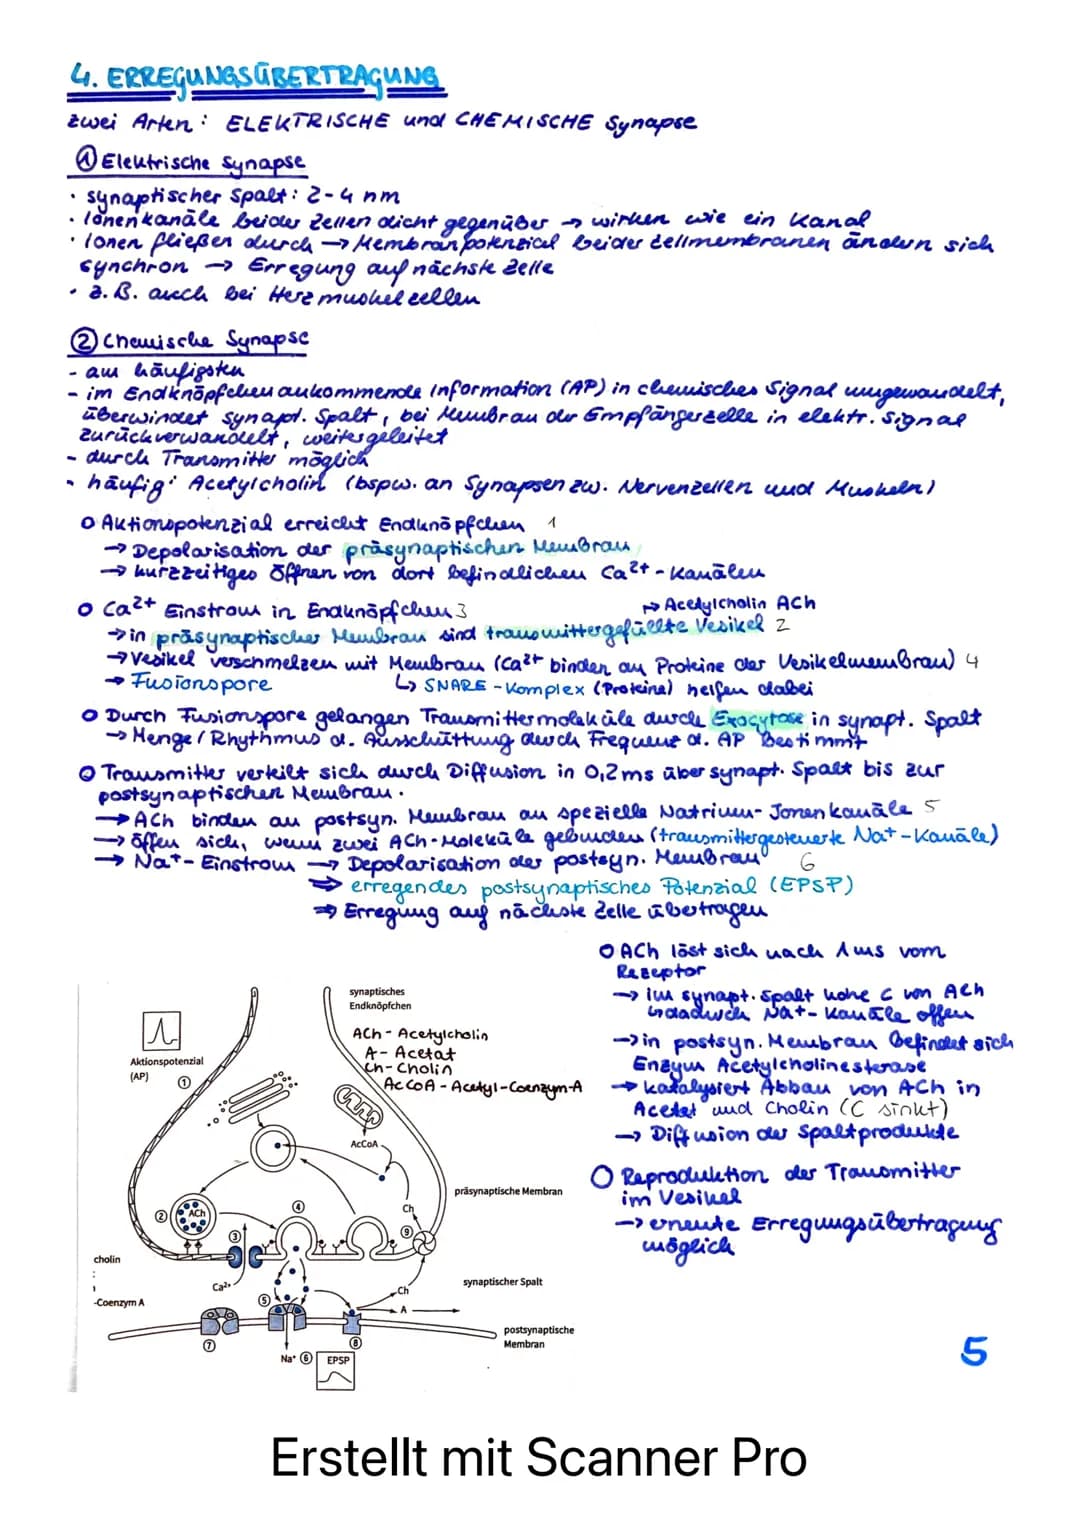 4. ERREGUNGSÜBERTRAGUNG
zwei Arten: ELEKTRISCHE und CHEMISCHE Synapse
① Elektrische Synapse
· synaptischer Spalt: 2-4 nm
· Ionenkanäle beider Zellen dicht gegenüber → wirken wie ein Kanal
· Ionen fließen durch → Membranpotenzial beider Zellmembranen ändern sich
synchron → Erregung auf nächste Zelle
· z.B. auch bei Herzmuskelzellen
② Chemische Synapse
- am häufigsten
- im Endknöpfchen ankommende Information (AP) in chemisches Signal umgewandelt,
überwindet synapt. Spalt, bei Membran der Empfängerzelle in elektr. Signal
zurückverwandelt, weitergeleitet
- durch Transmitter möglich
- häufig: Acetylcholin (bspw. an Synapsen zw. Nervenzellen und Muskeln)
o Aktionspotenzial erreicht Endknöpfchen 1
→ Depolarisation der präsynaptischen Membran
→ kurzzeitiges Öffnen von dort befindlichen Ca²⁺-Kanälen
o Ca²⁺ Einstrom in Endknöpfchen 3
↦ Acetylcholin ACh
→ in präsynaptischer Membran sind transmittergefüllte Vesikel 2
→ Vesikel verschmelzen mit Membran (Ca²⁺ binden an Proteine der Vesikelmembran) 4
→ Fusionspore
↳ SNARE-Komplex (Proteine) helfen dabei
o Durch Fusionspore gelangen Transmittermoleküle durch Exocytose in synapt. Spalt
→ Menge/Rhythmus d. Ausschüttung durch Frequenz d. AP bestimmt
o Transmitter verteilt sich durch Diffusion in 0,2ms über synapt. Spalt bis zur
postsynaptischen Membran.
→ ACh binden an postsyn. Membran an spezielle Natrium-Ionenkanäle 5
→ öffen sich, wenn zwei ACh-Moleküle gebunden (transmittergesteuerte Na⁺-Kanäle)
→ Na⁺-Einstrom → Depolarisation der postsyn. Membran 6
⇒ erregendes postsynaptisches Potenzial (EPSP)
⇒ Erregung auf nächste Zelle übertragen
o ACh löst sich nach 1ms vom
Rezeptor
→ im synapt. Spalt hohe C von ACh
↳ dadurch Na⁺-Kanäle offen
→ in postsyn. Membran befindet sich
Enzym Acetylcholinesterase
→ katalysiert Abbau von ACh in
Acetat und Cholin (C sinkt)
→ Diffusion der Spaltprodukte
o Reproduktion der Transmitter
im Vesikel
→ erneute Erregungsübertragung
möglich
synaptisches
Endknöpfchen
ACh - Acetylcholin
A - Acetat
Ch - Cholin
AcCoA - Acetyl-Coenzym-A
Aktionspotenzial
(AP)
①
AcCoA
präsynaptische Membran
② ACh
③
④
Ch
⑨
cholin
Ca²⁺
synaptischer Spalt
-Coenzym A
⑤
Ch
A
postsynaptische
Membran
⑦
Na⁺ ⑥
EPSP
⑧
5
Erstellt mit Scanner Pro